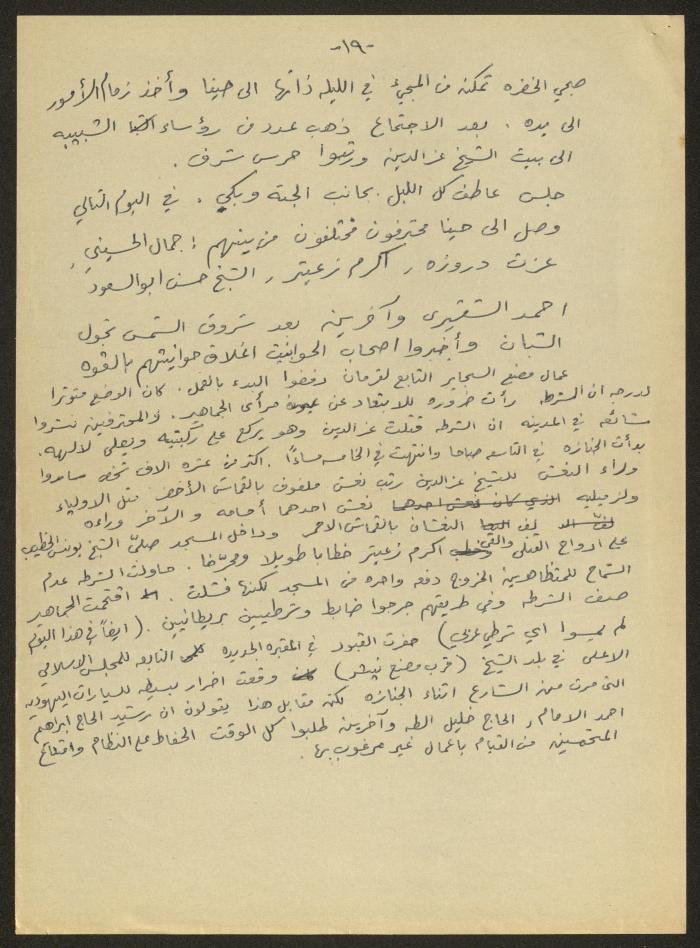 -١٩-
صبحي الخضره تمكن من المجيء في الليله ذاتها الى حيفا وأخذ زمام الأمور
الى يده . بعد الاجتماع ذهب عدد من رؤساء الشبيبه
الى بيت الشيخ عزالدين ورتبوا حرس شرف .
جلس عاطف كل الليل بجانب الجثة وبكى . في اليوم التالي
وصل الى حيفا محترفون مختلفون من بينهم : جمال الحسيني ,
عزت دروزه , اكرم زعيتر , الشيخ حسن ابو السعود
احمد الشقيرى وآخرين بعد شروق الشمس تجول
الشبان وأجبروا اصحاب الحوانيت اغلاق حوانيتهم بالقوه
عمال مصنع السجاير التابع لقرمان رفضوا البدء بالعمل . كان الوضع متوترا
لدرجه ان الشرطه رأت ضروره للابتعاد عن مرأى الجماهير . والمحترفين نشروا
شائعه في المدينه ان الشرطه قتلت عزالدين وهو يركع على ركبتيه ويصلي لالهه .
بدأت الجنازه في التاسعه صباحا وانتهت في الخامسه مساءً . اكثر من عشره الاف شخص ساروا
وراء النعش للشيخ عزالدين رتب نعش ملفوف بالقماش الأخضر مثل الاولياء
ولزميليه الذي كان نعش احدهما نعش احدهما أمامه والآخر وراءه
لف النعشان بالقماش الاحمر وداخل المسجد صلىّ الشيخ يونس الخطيب
على ارواح القتلى والقى اكرم زعيتر خطابا طويلا ومحرّضا . حاولت الشرطه عدم
السماح للمتظاهرين الخروج دفعه واحده من المسجد لكنها فشلت . اقتحمت الجماهير
صف الشرطه وفي طريقهم جرحوا ضابط وشرطيين بريطانيين . ( ايضاً في هذا اليوم
لم يمسوا اي شرطي عربي ) حفرت القبور في المقبره الجديده التابعه للمجلس الاسلامي
الاعلى في بلد الشيخ ( قرب مصنع نيشر ) وقعت اضرار بسيطه للسيارات اليهوديه
التي مرت من الشارع اثناء الجنازه لكن مقابل هذا يقولون ان رشيد الحاج ابراهيم
احمد الامام , الحاج خليل الطه وآخرين طلبوا كل الوقت الحفاظ على النظام
المتحمسين من القيام باعمال غير مرغوب بها .